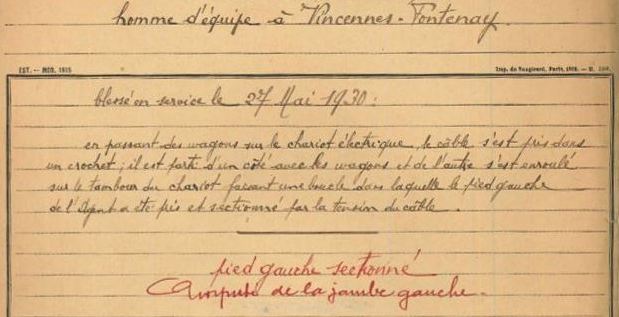 homme d'équipe à Vincennes-Fontenay.
EST. — MOD. 1815 Imp. de Vaugirard, Paris,
blessé en service le 27 Mai 1930 :
en passant des wagons sur le chariot électrique, le câble s'est pris dans
un crochet ; il est parti d'un côté avec les wagons et de l'autre s'est enroulé
sur le tambour du chariot faisant une boucle dans laquelle le pied gauche
de l'Agent a été pris et sectionné par la tension du câble.
pied gauche sectionné
Amputé de la jambe gauche.